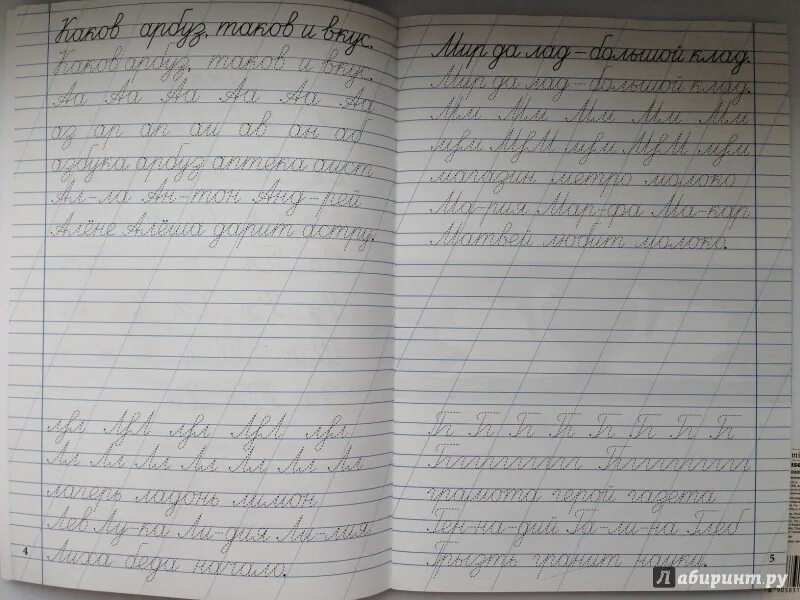 Каков арбуз, таков и вкус.
Каков арбуз, таков и вкус.
Аа Аа Аа Аа Аа Аа
аз ар ап аи ав ан аб
азбука арбуз аптека аист
Ал-ла Ан-тон Анд-рей
Алёне Алёша дарит астру.
Лл Лл Лл Лл Лл Лл Лл
лагерь ладонь лимон
Лев Лу-ка Ли-дия Ли-лия
Лиха беда начало.
4
Мир да лад – большой клад.
Мир да лад – большой клад.
Мм Мм Мм Мм Мм
магазин метро молоко
Ма-рия Мар-фа Ма-кар
Матвей любит молоко.
грамота герой газета
Ген-на-дий Га-ли-на Глеб
Грызть гранит науки.
5
Лабиринт.ру